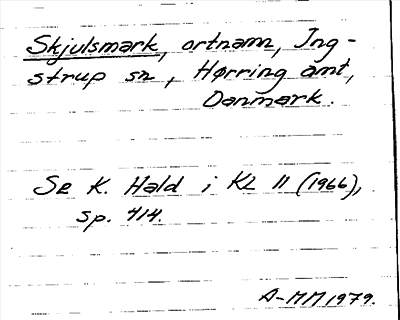 Skjulsmark, ortnamn, Ing-
strup sn, Hørring amt,
Danmark.
Se K. Hald i KL 11 (1966),
sp. 414.
A-MM 1979.